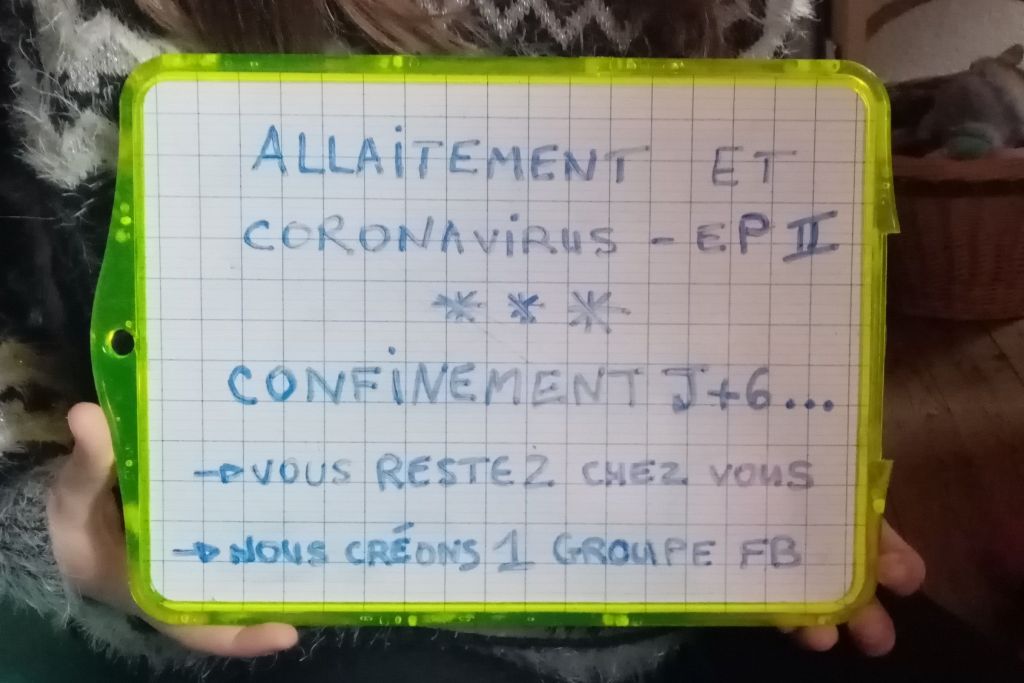 ALLAiTEMENT ET
CORONAViRUS - EP II
* * *
CONFiNEMENT J+6...
→ VOUS RESTEZ CHEZ VOUS
→ NOUS CRÉONS 1 GROUPE FB